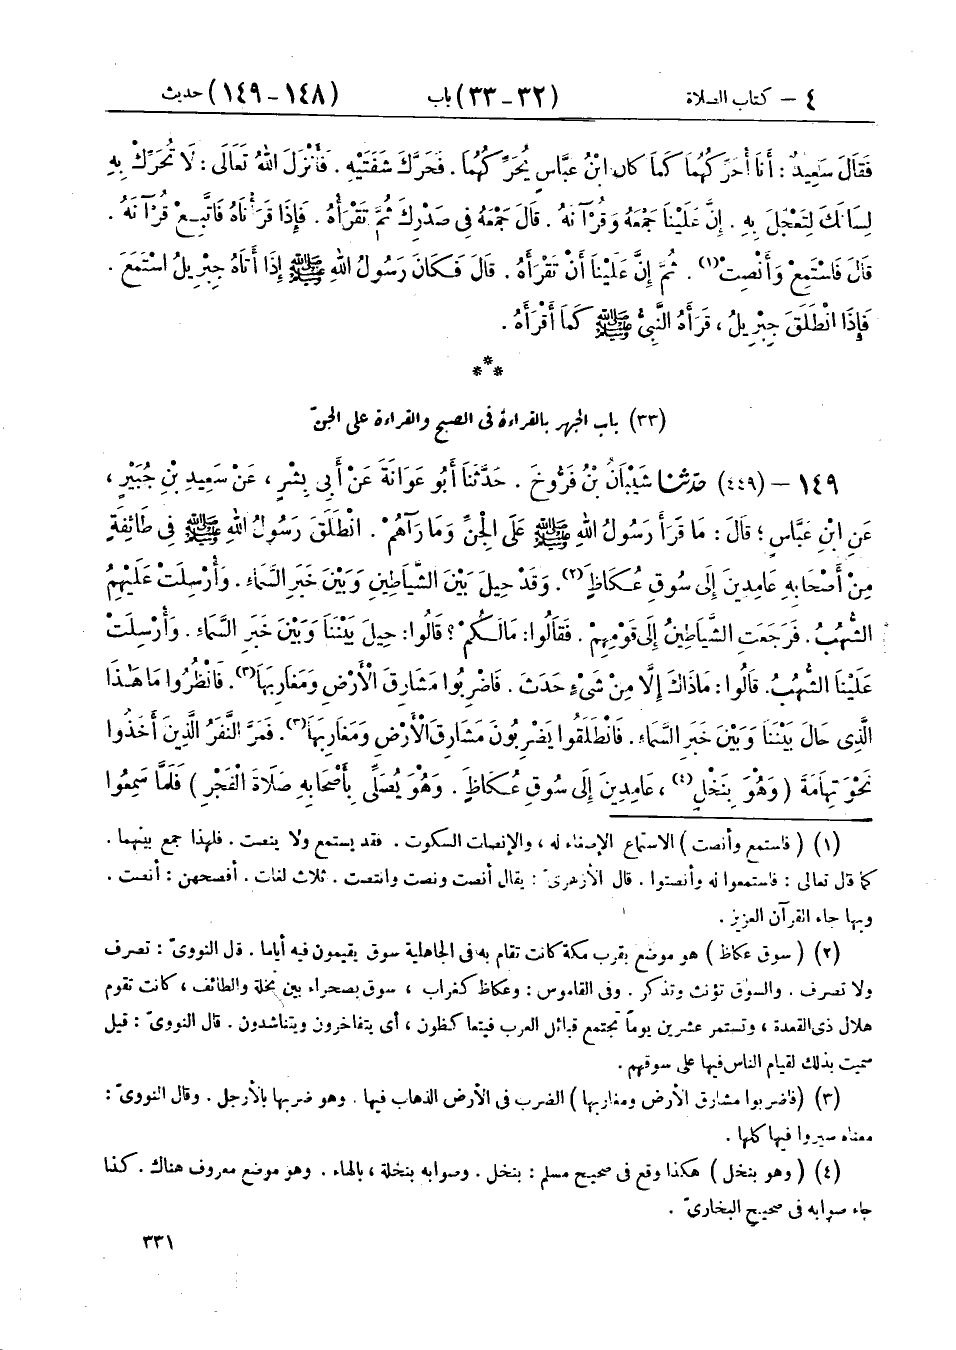 ٤ – كتاب الصلاة (٣٢-٣٣) باب (١٤٨-١٤٩) حديث
فَقَالَ سَعِيدٌ : أَنَا أُحَرِّكُهُمَا كَمَا كَانَ ابْنُ عَبَّاسٍ يُحَرِّكُهُمَا . فَحَرَّكَ شَفَتَيْهِ . فَأَنْزَلَ اللهُ تَعَالَى : لَا تُحَرِّكْ بِهِ
لِسَانَكَ لِتَعْجَلَ بِهِ . إِنَّ عَلَيْنَا جَمْعَهُ وَقُرْآنَهُ . قَالَ جَمْعَهُ فِى صَدْرِكَ ثُمَّ تَقْرَأُهُ . فَإِذَا قَرَأْنَاهُ فَاتَّبِعْ قُرْآنَهُ .
قَالَ فَاسْتَمِعْ وَأَنْصِتْ(١) . ثُمَّ إِنَّ عَلَيْنَا أَنْ تَقْرَأَهُ . قَالَ فَكَانَ رَسُولُ اللهِ ﷺ إِذَا أَتَاهُ جِبْرِيلُ اسْتَمَعَ .
فَإِذَا انْطَلَقَ جِبْرِيلُ ، قَرَأَهُ النَّبِىُّ ﷺ كَمَا أَقْرَأَهُ .
***
(٣٣) باب الجهر بالقراءة فى الصبح والقراءة على الجنّ
١٤٩ – (٤٤٩) حَدَّثَنَا شَيْبَانُ بْنُ فَرُّوخَ . حَدَّثَنَا أَبُو عَوَانَةَ عَنْ أَبِى بِشْرٍ ، عَنْ سَعِيدِ بْنِ جُبَيْرٍ ،
عَنِ ابْنِ عَبَّاسٍ ؛ قَالَ : مَا قَرَأَ رَسُولُ اللهِ ﷺ عَلَى الْجِنِّ وَمَا رَآهُمْ . انْطَلَقَ رَسُولُ اللهِ ﷺ فِى طَائِفَةٍ
مِنْ أَصْحَابِهِ عَامِدِينَ إِلَى سُوقِ عُكَاظٍ(٢) . وَقَدْ حِيلَ بَيْنَ الشَّيَاطِينِ وَبَيْنَ خَبَرِ السَّمَاءِ . وَأُرْسِلَتْ عَلَيْهِمُ
الشُّهُبُ . فَرَجَعَتِ الشَّيَاطِينُ إِلَى قَوْمِهِمْ . فَقَالُوا : مَا لَكُمْ ؟ قَالُوا : حِيلَ بَيْنَنَا وَبَيْنَ خَبَرِ السَّمَاءِ . وَأُرْسِلَتْ
عَلَيْنَا الشُّهُبُ. قَالُوا : مَاذَاكَ إِلَّا مِنْ شَىْءٍ حَدَثَ . فَاضْرِبُوا مَشَارِقَ الْأَرْضِ وَمَغَارِبَهَا(٣). فَانْظُرُوا مَا هٰذَا
الَّذِى حَالَ بَيْنَنَا وَبَيْنَ خَبَرِ السَّمَاءِ . فَانْطَلَقُوا يَضْرِبُونَ مَشَارِقَ الْأَرْضِ وَمَغَارِبَهَا(٣). فَمَرَّ النَّفَرُ الَّذِينَ أَخَذُوا
نَحْوَ تِهَامَةَ ( وَهُوَ بِنَخْلٍ(٤) ، عَامِدِينَ إِلَى سُوقِ عُكَاظٍ . وَهُوَ يُصَلِّى بِأَصْحَابِهِ صَلَاةَ الْفَجْرِ ) فَلَمَّا سَمِعُوا
(١) ( فاستمع وأنصت ) الاستماع الإصغاء له ، والإنصات السكوت . فقد يستمع ولا ينصت . فلهذا جمع بينهما .
كما قال تعالى : فاستمعوا له وأنصتوا . قال الأزهرىّ : يقال أنصت ونصت وانتصت . ثلاث لغات . أفصحهن : أنصت .
وبها جاء القرآن العزيز .
(٢) ( سوق عكاظ ) هو موضع بقرب مكة كانت تقام به فى الجاهلية سوق يقيمون فيه أياما . قال النووىّ : تصرف
ولا تصرف . والسوق تؤنث وتذكر . وفى القاموس : وعكاظ كغراب ، سوق بصحراء بين نخلة والطائف ، كانت تقوم
هلال ذى القعدة ، وتستمر عشرين يوماً تجتمع قبائل العرب فيتعاكظون ، أى يتفاخرون ويتناشدون . قال النووىّ : قيل
سميت بذلك لقيام الناس فيها على سوقهم .
(٣) (فاضربوا مشارق الأرض ومغاربها ) الضرب فى الأرض الذهاب فيها . وهو ضربها بالأرجل . وقال النووىّ :
معناه سيروا فيها كلها .
(٤) ( وهو بنخل ) هكذا وقع فى صحيح مسلم : بنخل . وصوابه بنخلة ، بالهاء . وهو موضع معروف هناك . كذا
جاء صوابه فى صحيح البخارىّ .
٣٣١